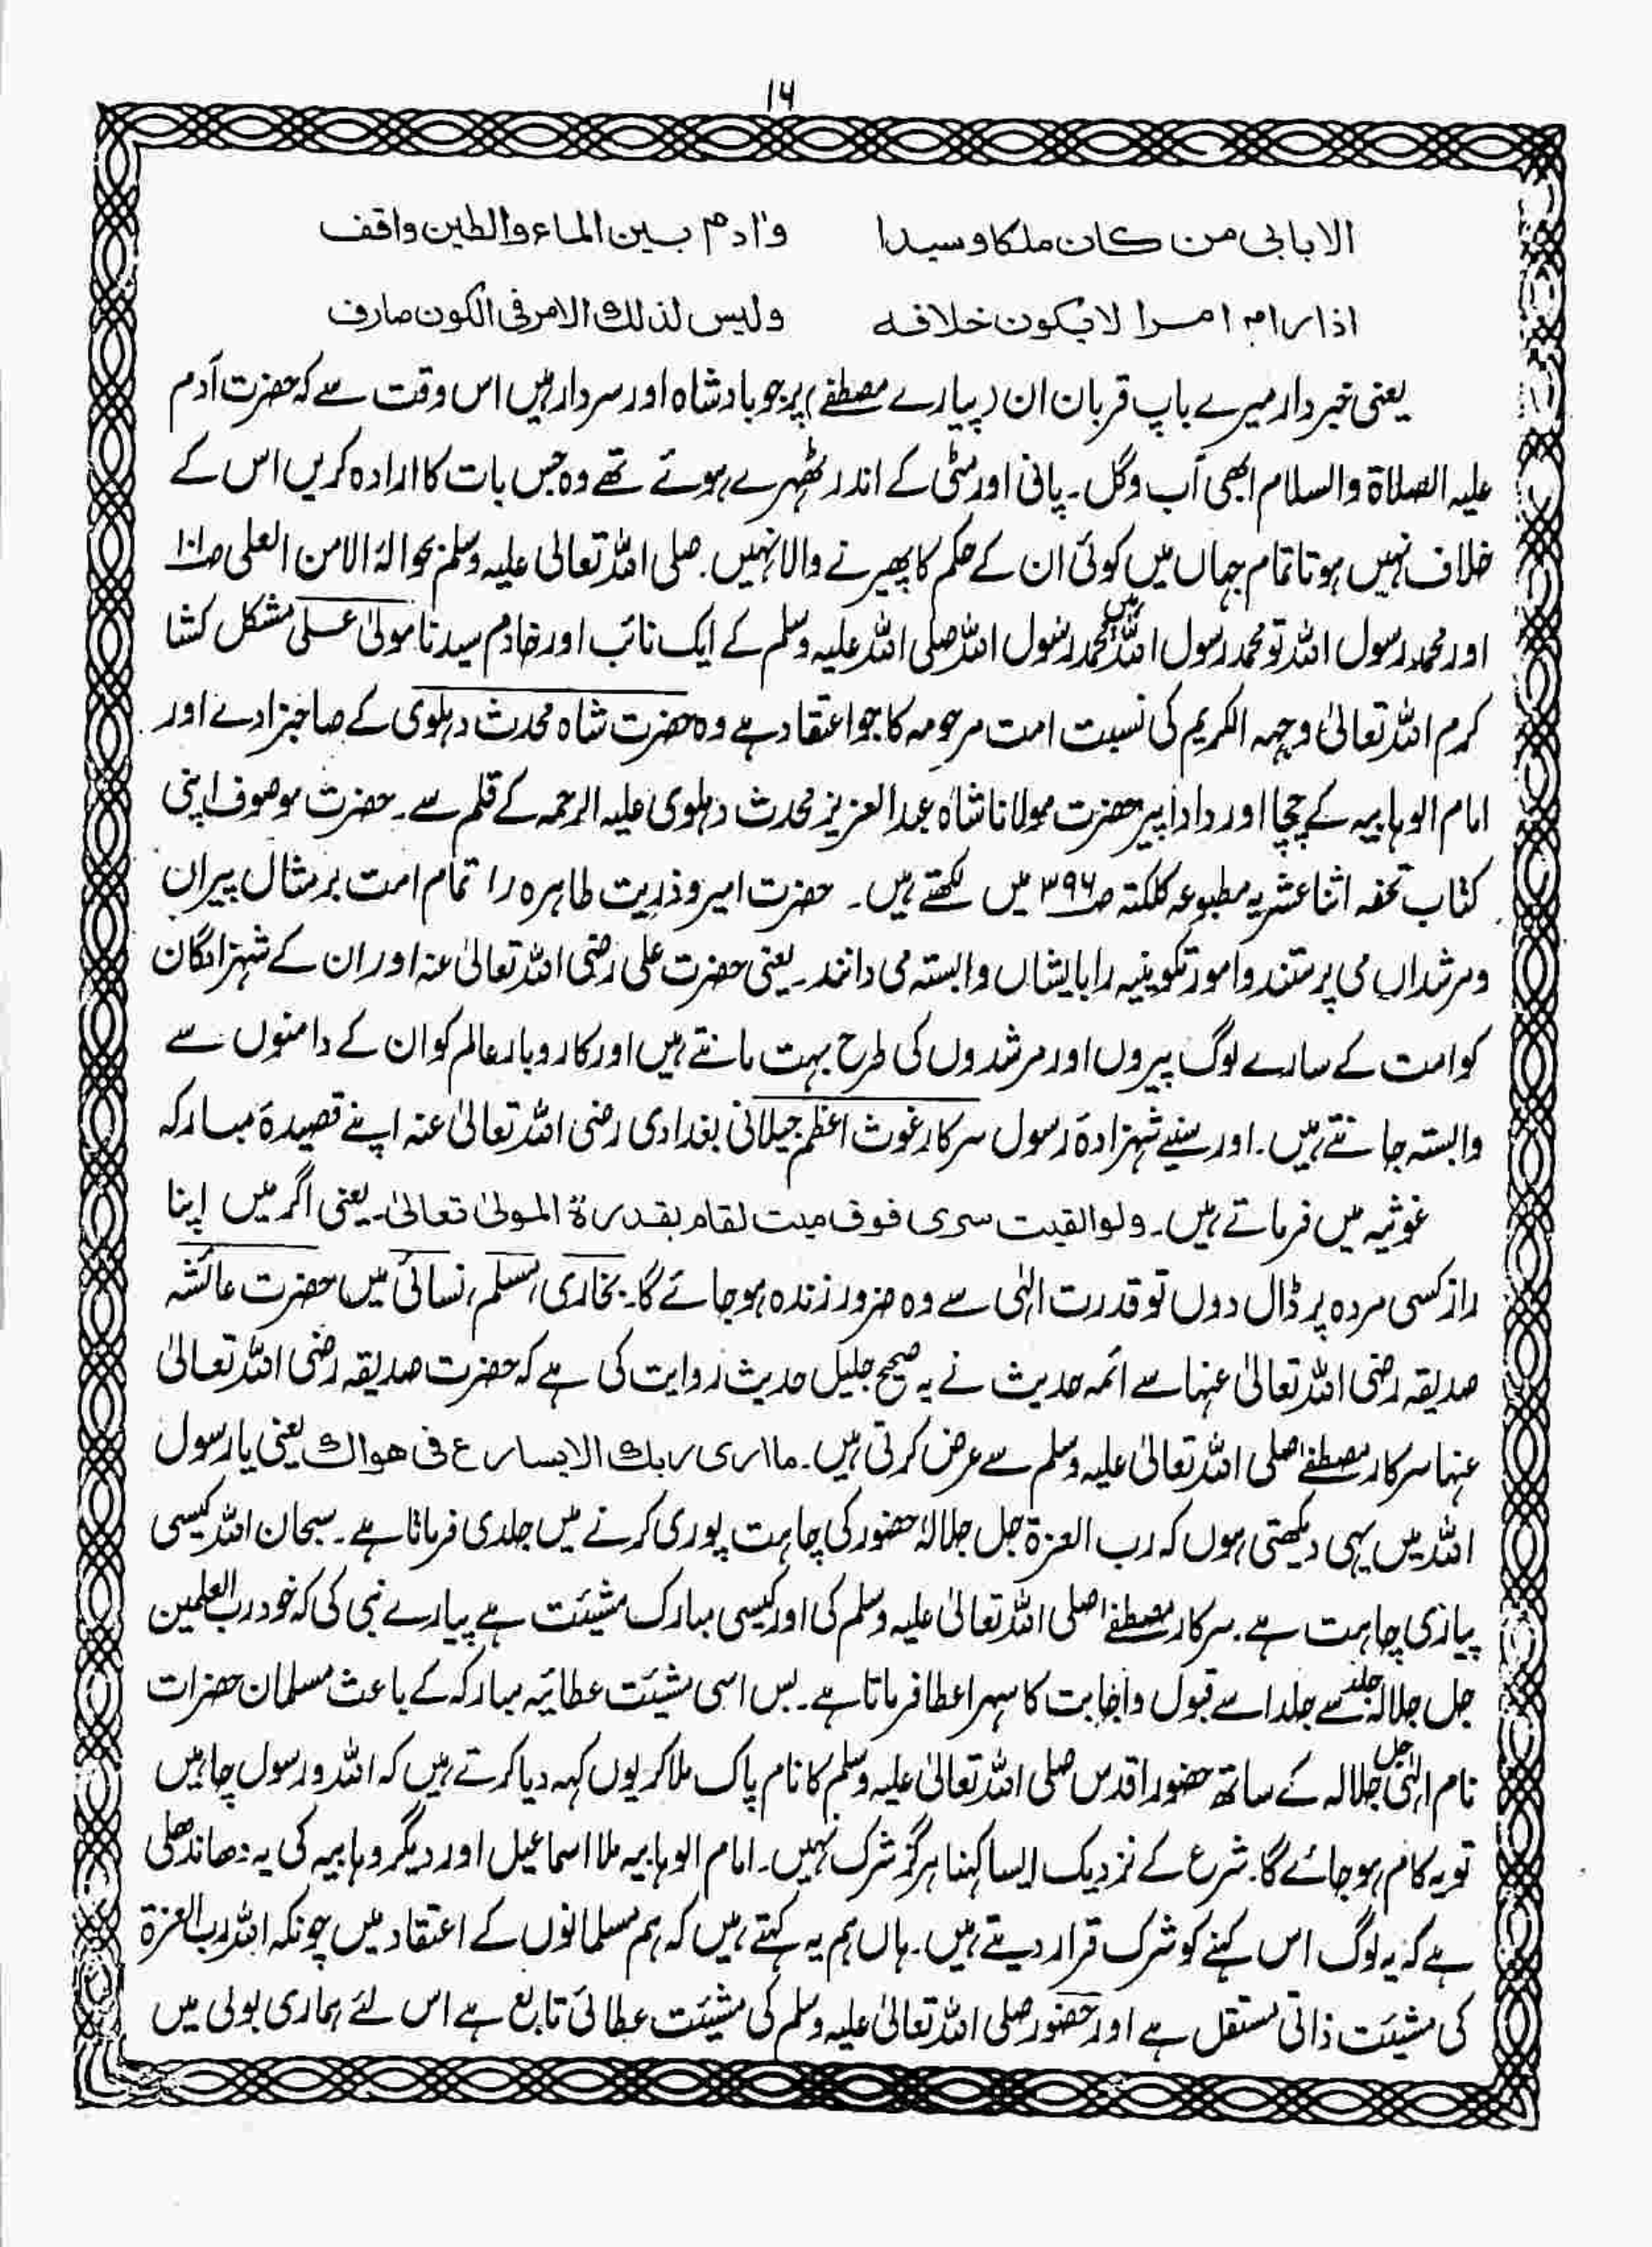 ۱۶
الابابی من کان ملکا وسیدا وادم بین الماء والطین واقف
اذا رام امرا لایکون خلافہ ولیس لذلک الامر فی الکون صارف
یعنی خبردار میرے باپ قربان ان (پیارے مصطفےٰ) پر جو بادشاہ اور سردار ہیں اس وقت سے کہ حضرت آدم
علیہ الصلاۃ والسلام ابھی آب وگل۔ پانی اور مٹی کے اندر ٹھہرے ہوئے تھے وہ جس بات کا ارادہ کریں اس کے
خلاف نہیں ہوتا تمام جہاں میں کوئی ان کے حکم کا پھیرنے والا نہیں۔ صلی اللہ تعالی علیہ وسلم بحوالہ الامن العلی صـ۱۰۱
اور محمد رسول اللہ تو محمد رسول اللہ ہیں محمد رسول اللہ صلی اللہ علیہ وسلم کے ایک نائب اور خادم سیدنا مولیٰ علی مشکل کشا
کرم اللہ تعالیٰ وجہہ الکریم کی نسبت امت مرحومہ کا جو اعتقاد ہے وہ حضرت شاہ محدث دہلوی کے صاحبزادے اور
امام الوہابیہ کے چچا اور دادا پیر حضرت مولانا شاہ عبد العزیز محدث دہلوی علیہ الرحمہ کے قلم سے۔ حضرت موصوف اپنی
کتاب تحفہ اثنا عشریہ مطبوعہ کلکتہ صـ۳۹۶ میں لکھتے ہیں۔ حضرت امیر وذریت طاہرہ را تمام امت بر مثال پیران
ومرشداں می پرستند وامور تکوینیہ را بایشاں وابستہ می دانند۔ یعنی حضرت علی رضی اللہ تعالیٰ عنہ اور ان کے شہزادگان
کو امت کے سارے لوگ پیروں اور مرشدوں کی طرح بہت مانتے ہیں اور کاروبار عالم کو ان کے دامنوں سے
وابستہ جانتے ہیں۔ اور سنیے شہزادۂ رسول سرکار غوث اعظم جیلانی بغدادی رضی اللہ تعالیٰ عنہ اپنے قصیدۂ مبارکہ
غوثیہ میں فرماتے ہیں۔ ولو القیت سری فوق میت لقام بقدرۃ المولیٰ تعالیٰ۔ یعنی اگر میں اپنا
راز کسی مردہ پر ڈال دوں تو قدرت الہٰی سے وہ ضرور زندہ ہو جائے گا۔ بخاری، مسلم، نسائی میں حضرت عائشہ
صدیقہ رضی اللہ تعالیٰ عنہا سے ائمہ حدیث نے یہ صحیح جلیل حدیث روایت کی ہے کہ حضرت صدیقہ رضی اللہ تعالیٰ
عنہا سرکار مصطفےٰ صلی اللہ تعالیٰ علیہ وسلم سے عرض کرتی ہیں۔ ما اری ربک الا یسارع فی ھواک یعنی یا رسول
اللہ میں یہی دیکھتی ہوں کہ رب العزۃ جل جلالہٗ حضور کی چاہت پوری کرنے میں جلدی فرماتا ہے۔ سبحان اللہ کیسی
پیاری چاہت ہے۔ سرکار مصطفےٰ صلی اللہ تعالیٰ علیہ وسلم کی اور کیسی مبارک مشیئت ہے پیارے نبی کی کہ خود رب العلمین
جل جلالہٗ جلد سے جلد اسے قبول واجابت کا سہرا عطا فرماتا ہے۔ بس اسی مشیئت عطائیہ مبارکہ کے باعث مسلمان حضرات
نام الہٰی جل جلالہ کے ساتھ حضور اقدس صلی اللہ تعالیٰ علیہ وسلم کا نام پاک ملا کر یوں کہہ دیا کرتے ہیں کہ اللہ ورسول چاہیں
تو یہ کام ہو جائے گا۔ شرع کے نزدیک ایسا کہنا ہرگز شرک نہیں۔ امام الوہابیہ ملا اسماعیل اور دیگر وہابیہ کی یہ دھاندھلی
ہے کہ یہ لوگ اس کہنے کو شرک قرار دیتے ہیں۔ ہاں ہم یہ کہتے ہیں کہ ہم مسلمانوں کے اعتقاد میں چونکہ اللہ رب العزۃ
کی مشیئت ذاتی مستقل ہے اور حضور صلی اللہ تعالیٰ علیہ وسلم کی مشیئت عطائی تابع ہے اس لئے ہماری بولی میں